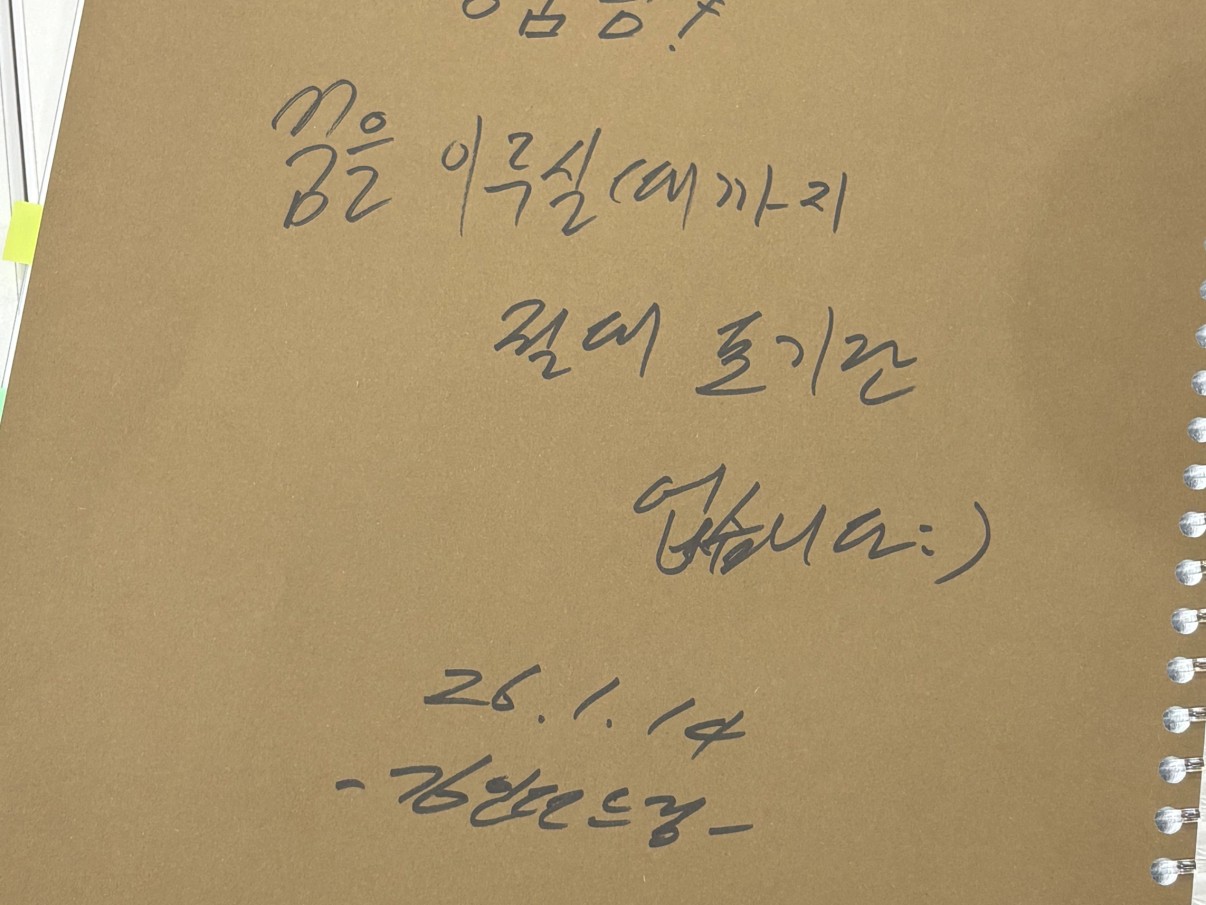 꿈을 이루실 때까지
절대 포기란
없습니다:)
26.1.14